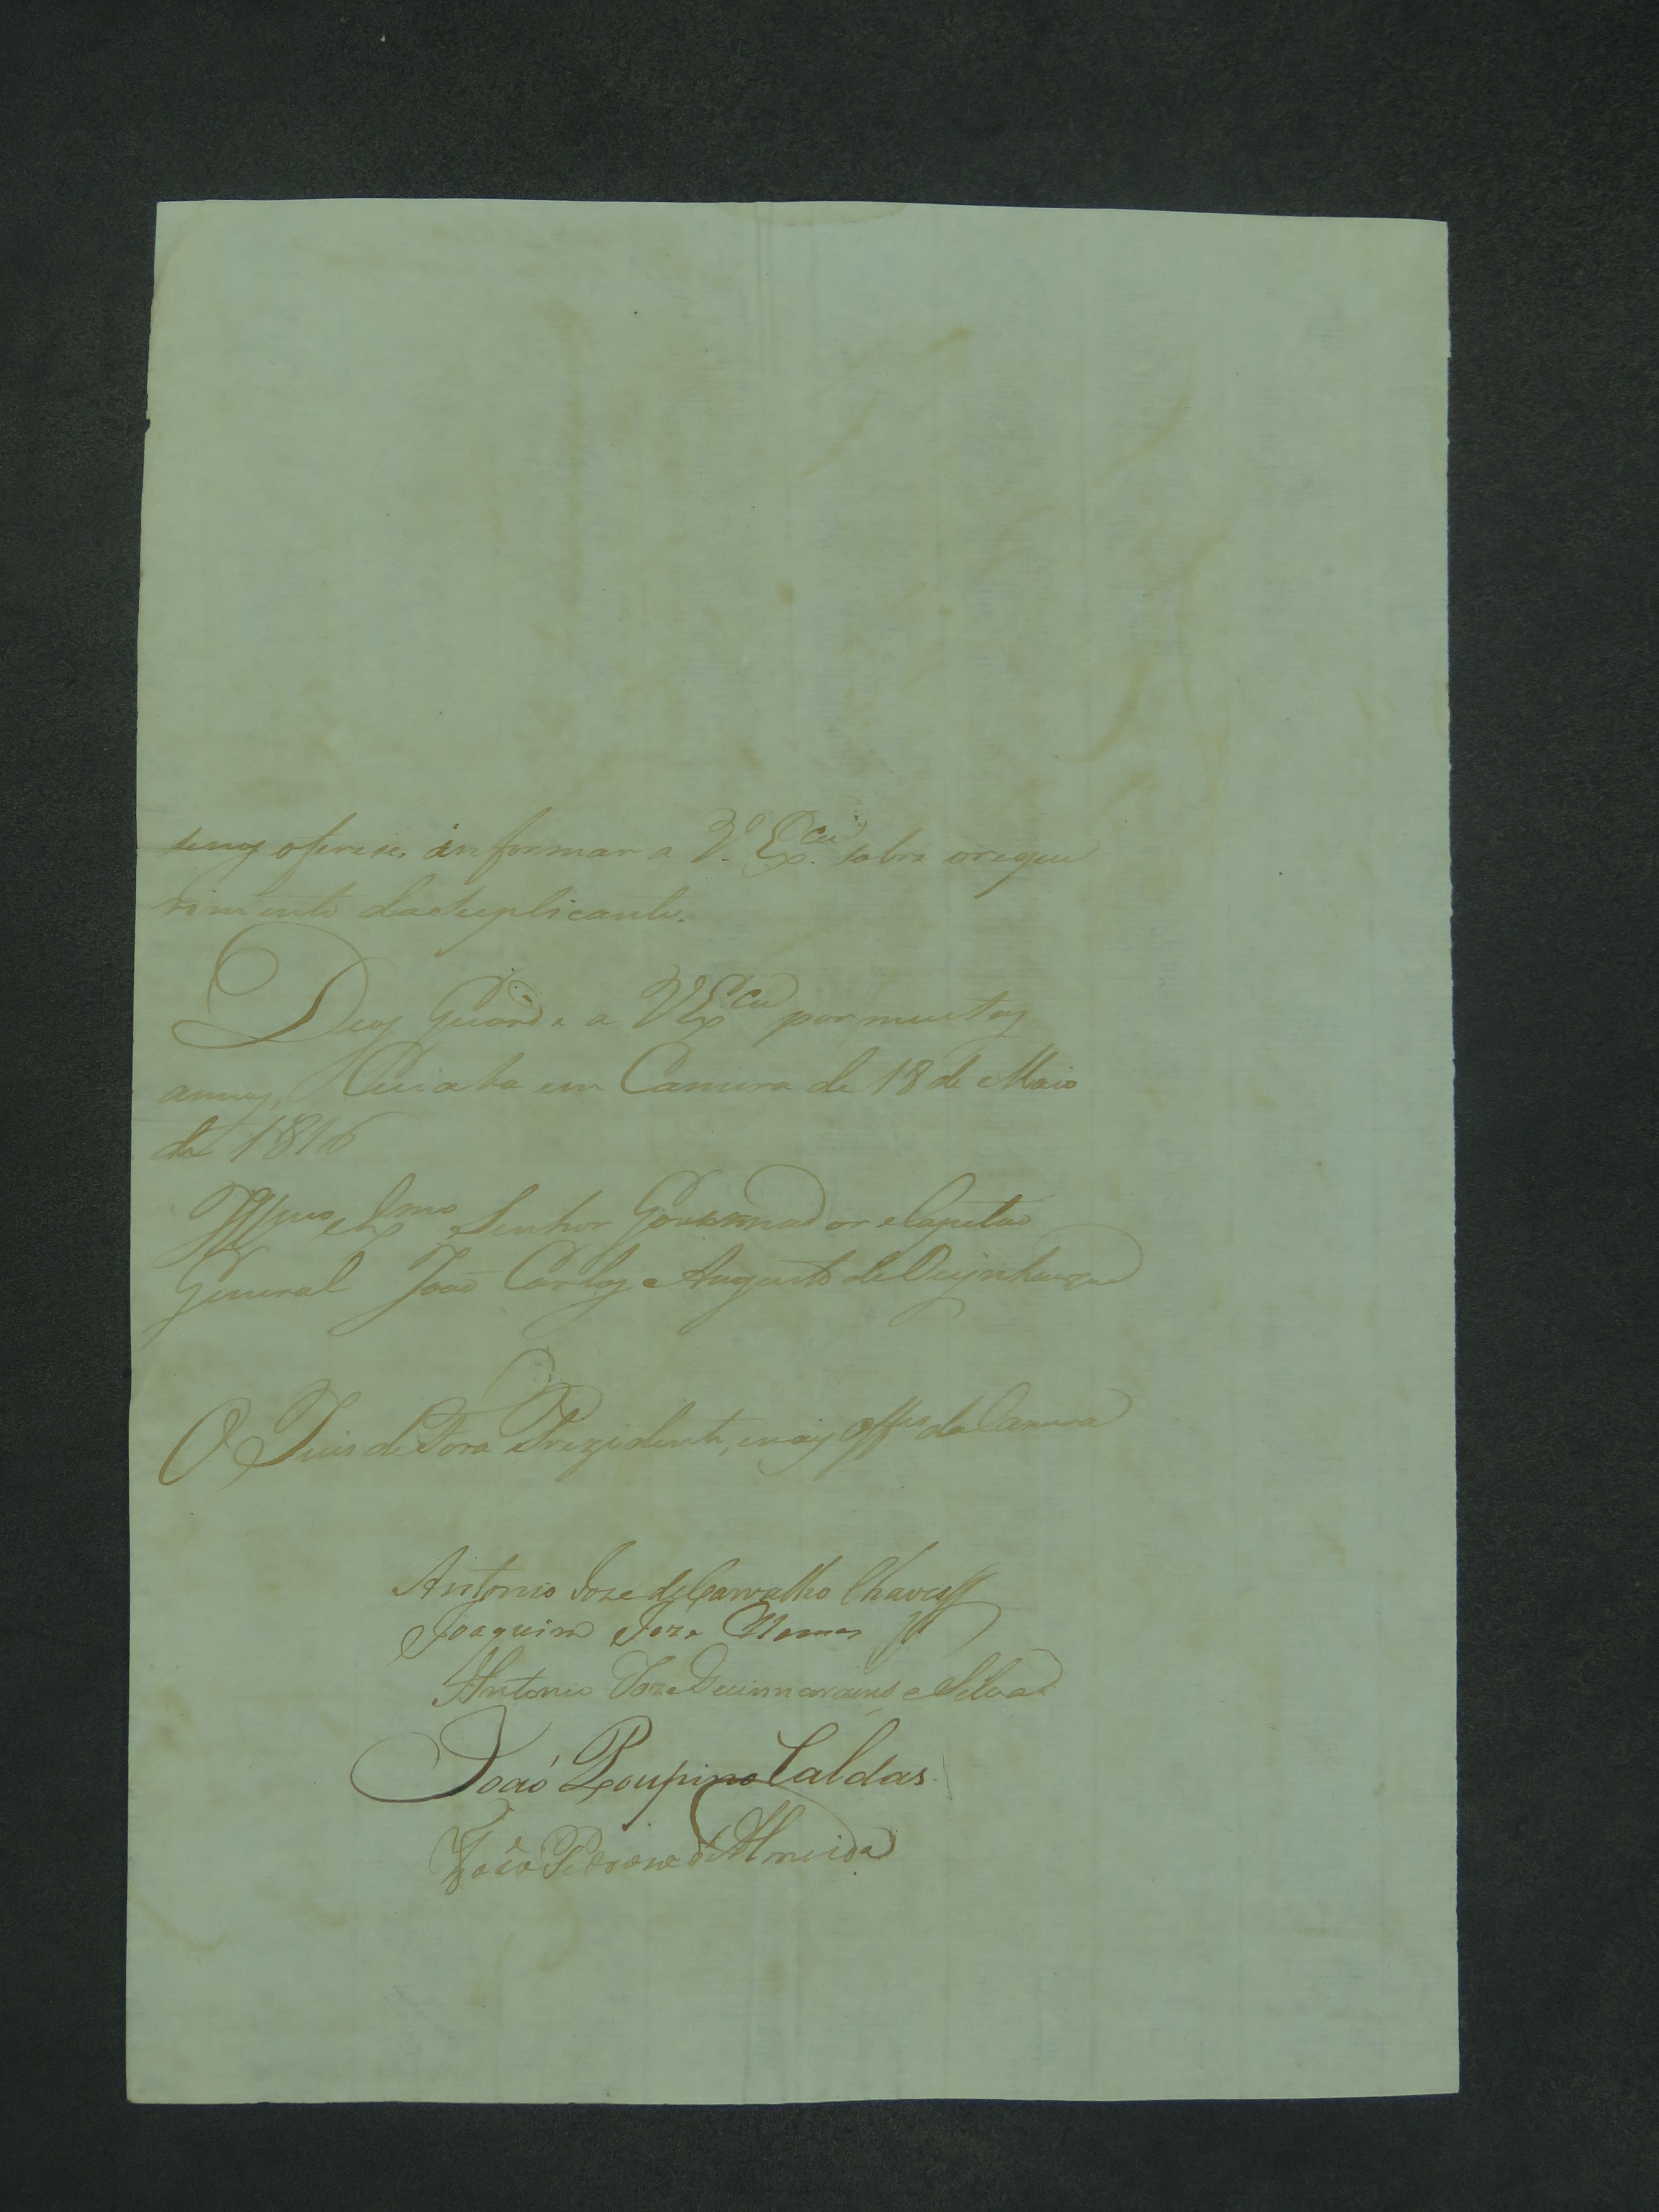 nos oferese informar a V. Ex.cia sobre oreque
rimento daSuplicante.
Deos Guarde a V Ex.cia por muitos
annos, Cuiaba em Camera de 18 de Maio
de 1816
Illmo eExmo Senhor Governador eCapitão
General João Carlos Augusto deOeynhausen
O Juis deFora Prezidente, emais Offes daCamera
Antonio Joze deCarvalho Chaves
Joaquim Joze
Antonio Joze Guimaraens eSilva
João Poupino Caldas.
João Pedrozo de Almeida